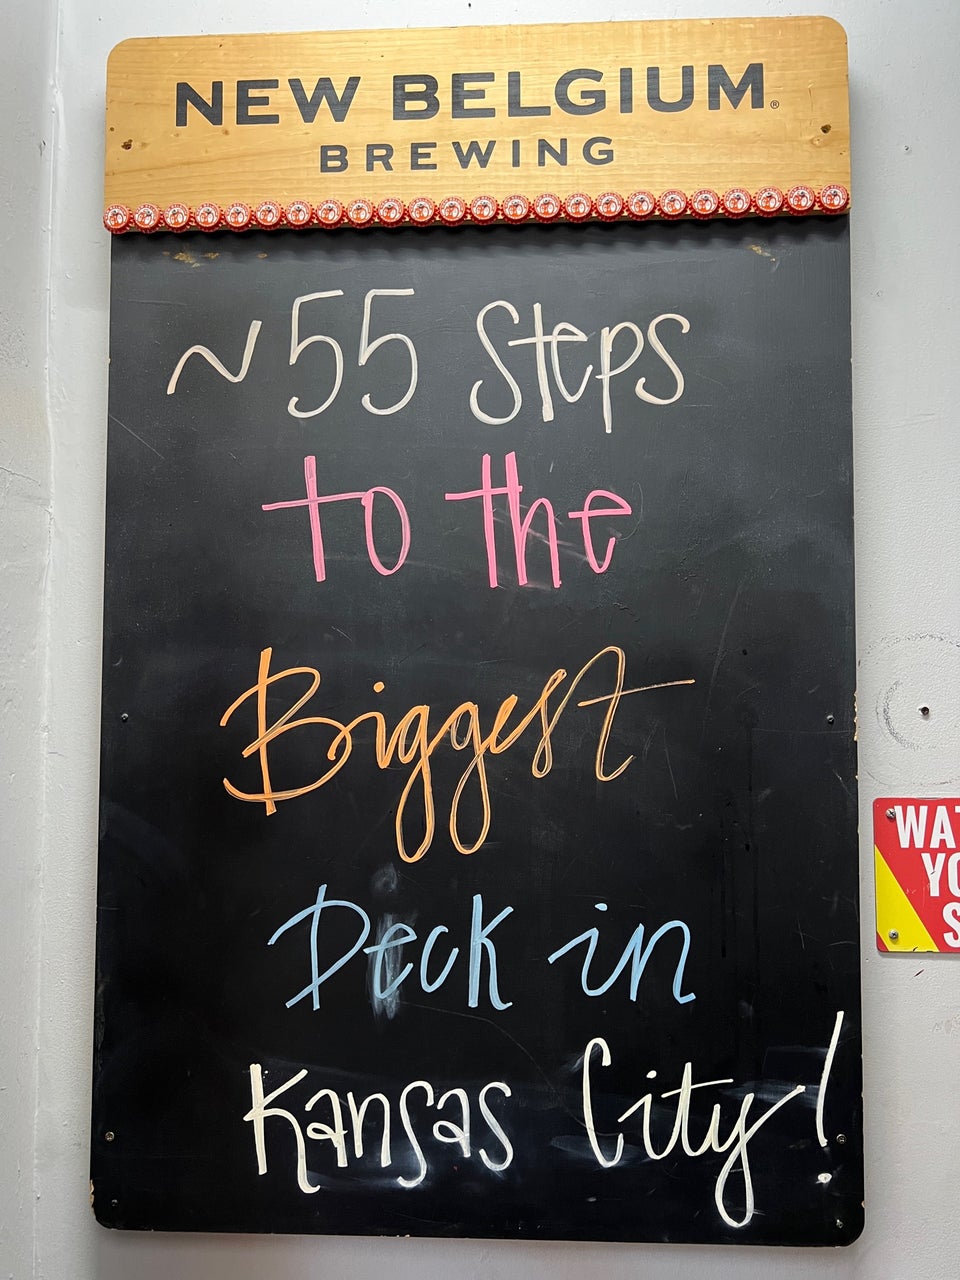 NEW BELGIUM®
BREWING
~55 Steps
to the
Biggest
Deck in
Kansas City!
WAT
YO
S